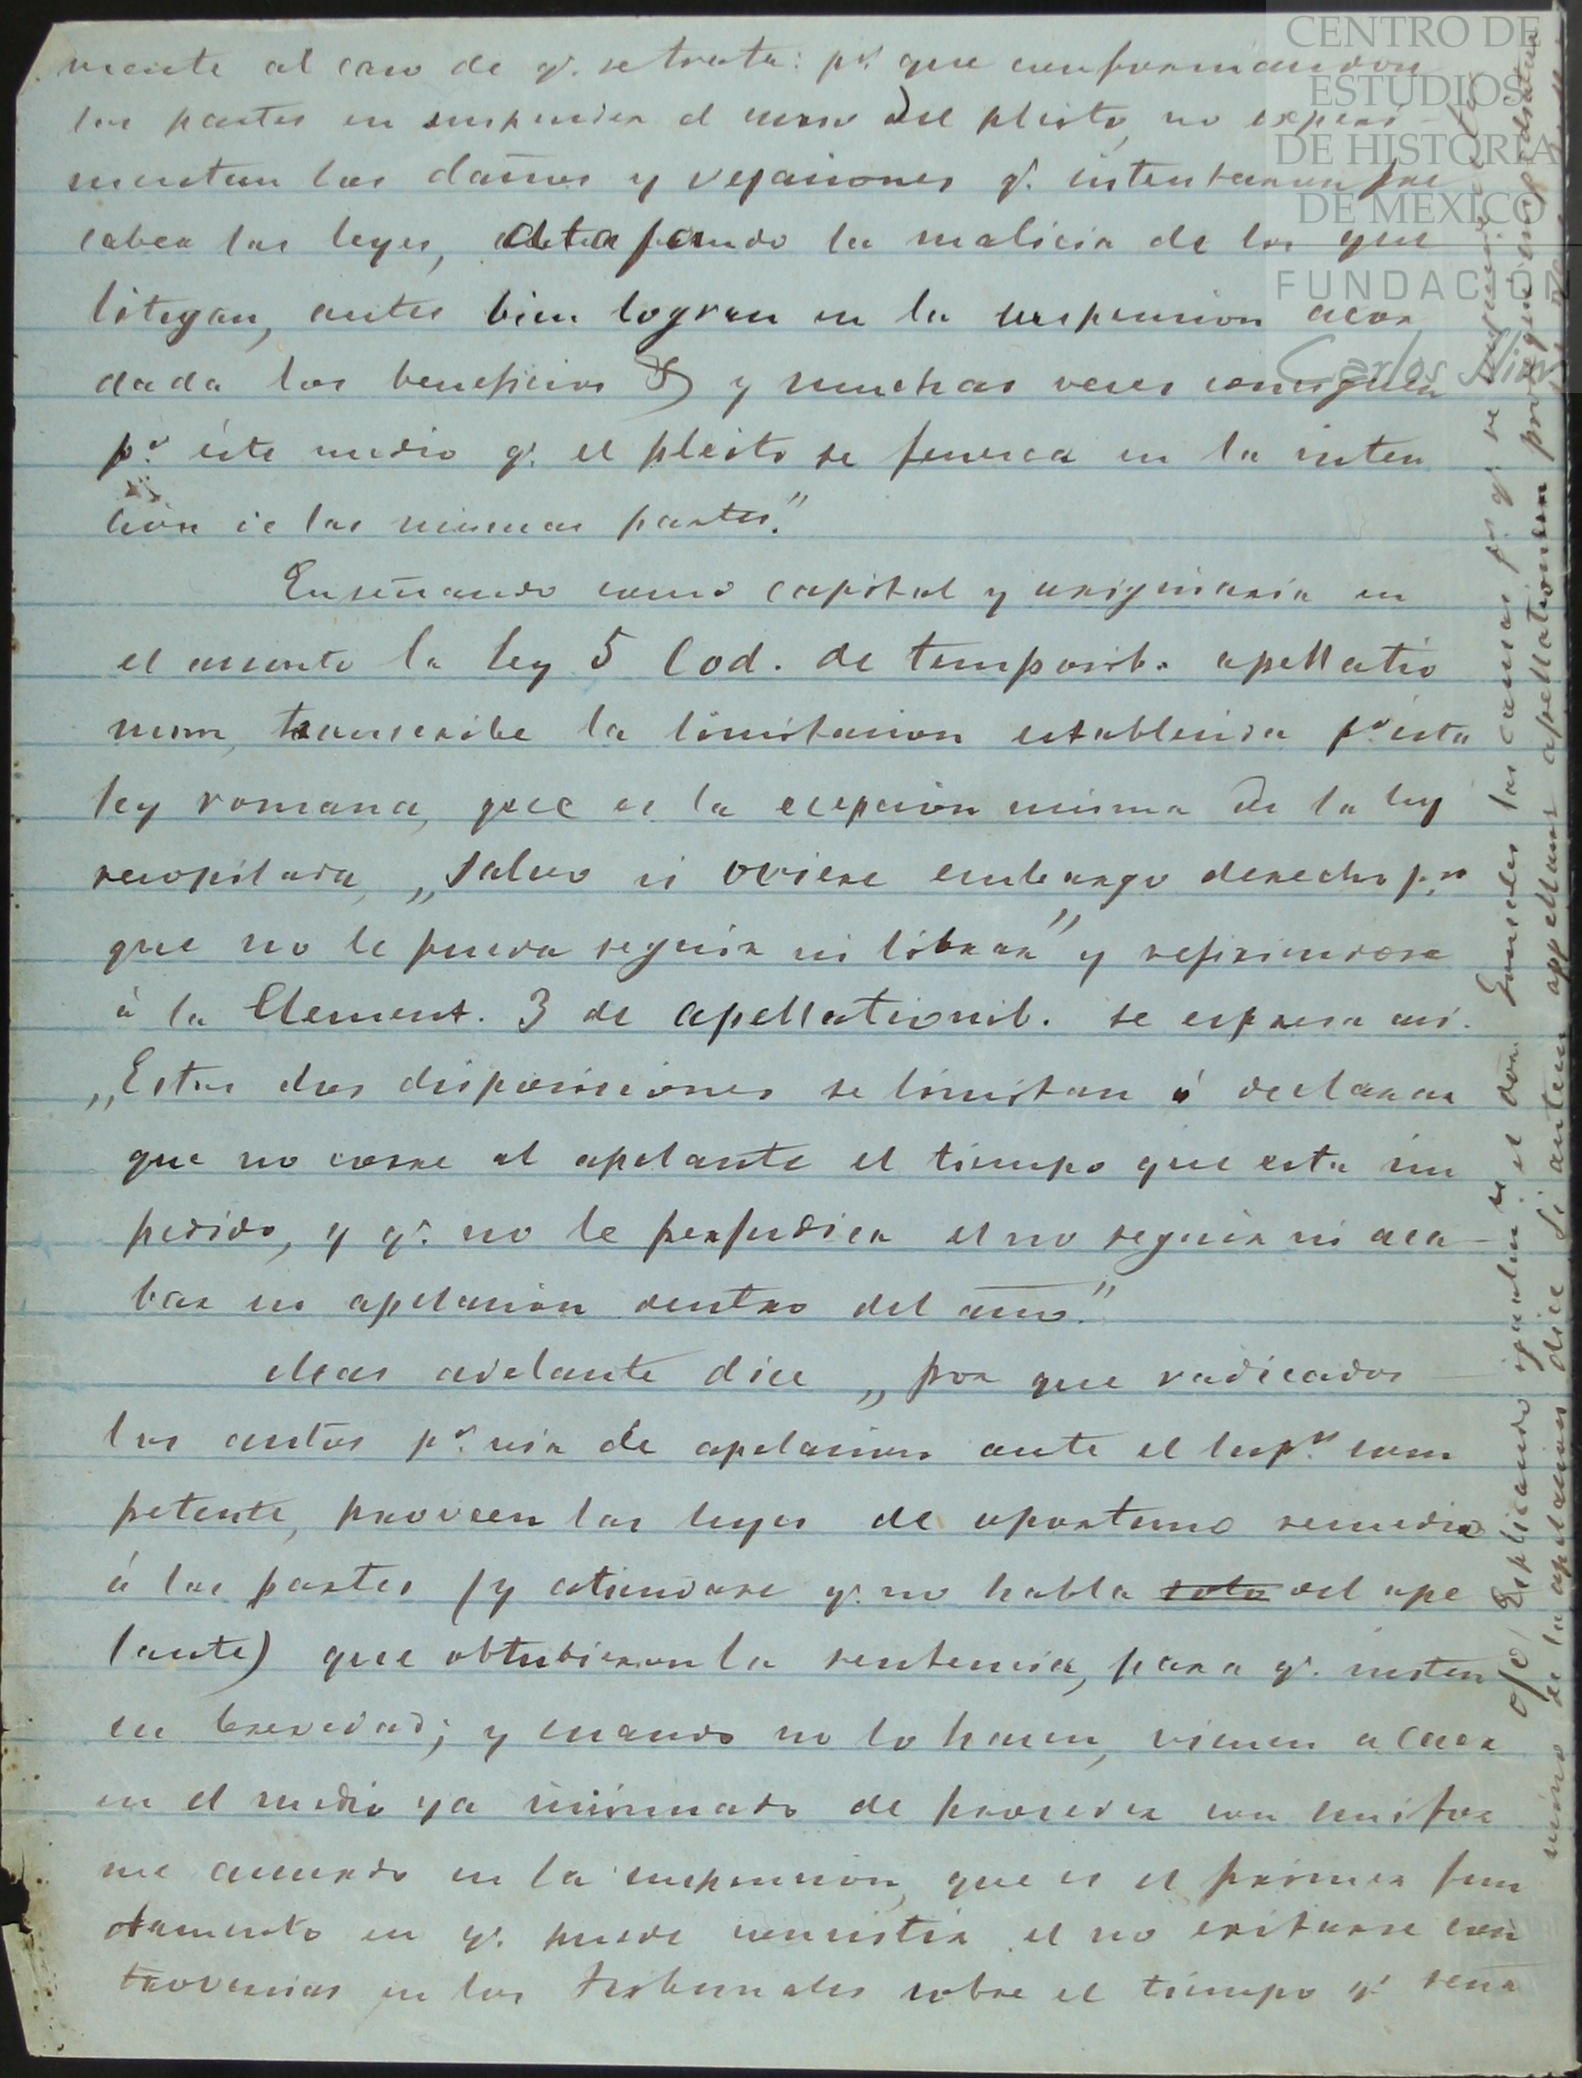 mente al caso de q.e se trata: p.r que conformandose
las partes en suspender el curso del pleito, no experi-
mentan los daños y vejaciones q.e intentaron pre
caber las leyes, atajando la malicia de los que
litigan, antes bien logran en la suspension acor
dada los beneficios &) y muchas veces consiguen
p.r éste medio q.e el pleito se fenesca en la inten
cion de las mismas partes."
Enseñando como capital y originaria en
el asunto la ley 5 Cod. de temporib. apellatio
num, transcribe la limitacion establecida p.r esta
ley romana, que es la ecepcion misma de la ley
recopilada, „salvo si oviere embargo derecho p.r
que no le pueda seguir ni librar" y refiriendose
á la Clement. 3 de apellationib. se espresa asi.
„Estas dos disposiciones se limitan á declarar
que no corre al apelante el tiempo que esta im
pedido, y q.e no le perjudica el no seguir ni aca-
bar su apelacion dentro del año."
Mas adelante dice „por que radicados
los autos p.r via de apelacion ante el sup.or com
petente, proveen las leyes de oportuno remedio
á las partes (y atiendase q.e no habla solo del ape
lante) que obtubieron la sentencia, para q.e insten
su brevedad; y cuando no lo hacen, vienen a caer
en el medio ya insinuado de proceder con unifor
me acuerdo en la suspension, que es el primer fun
damento en q.e puede consistir el no exitarse con
trovercias en los tribunales sobre el tiempo q.e seña
o/o Esplicando igualm.te el Sor. Gonzales las causas p.r q.e se
mino de la apelacion dice Si autem appellans apellationem prosequi impediatur